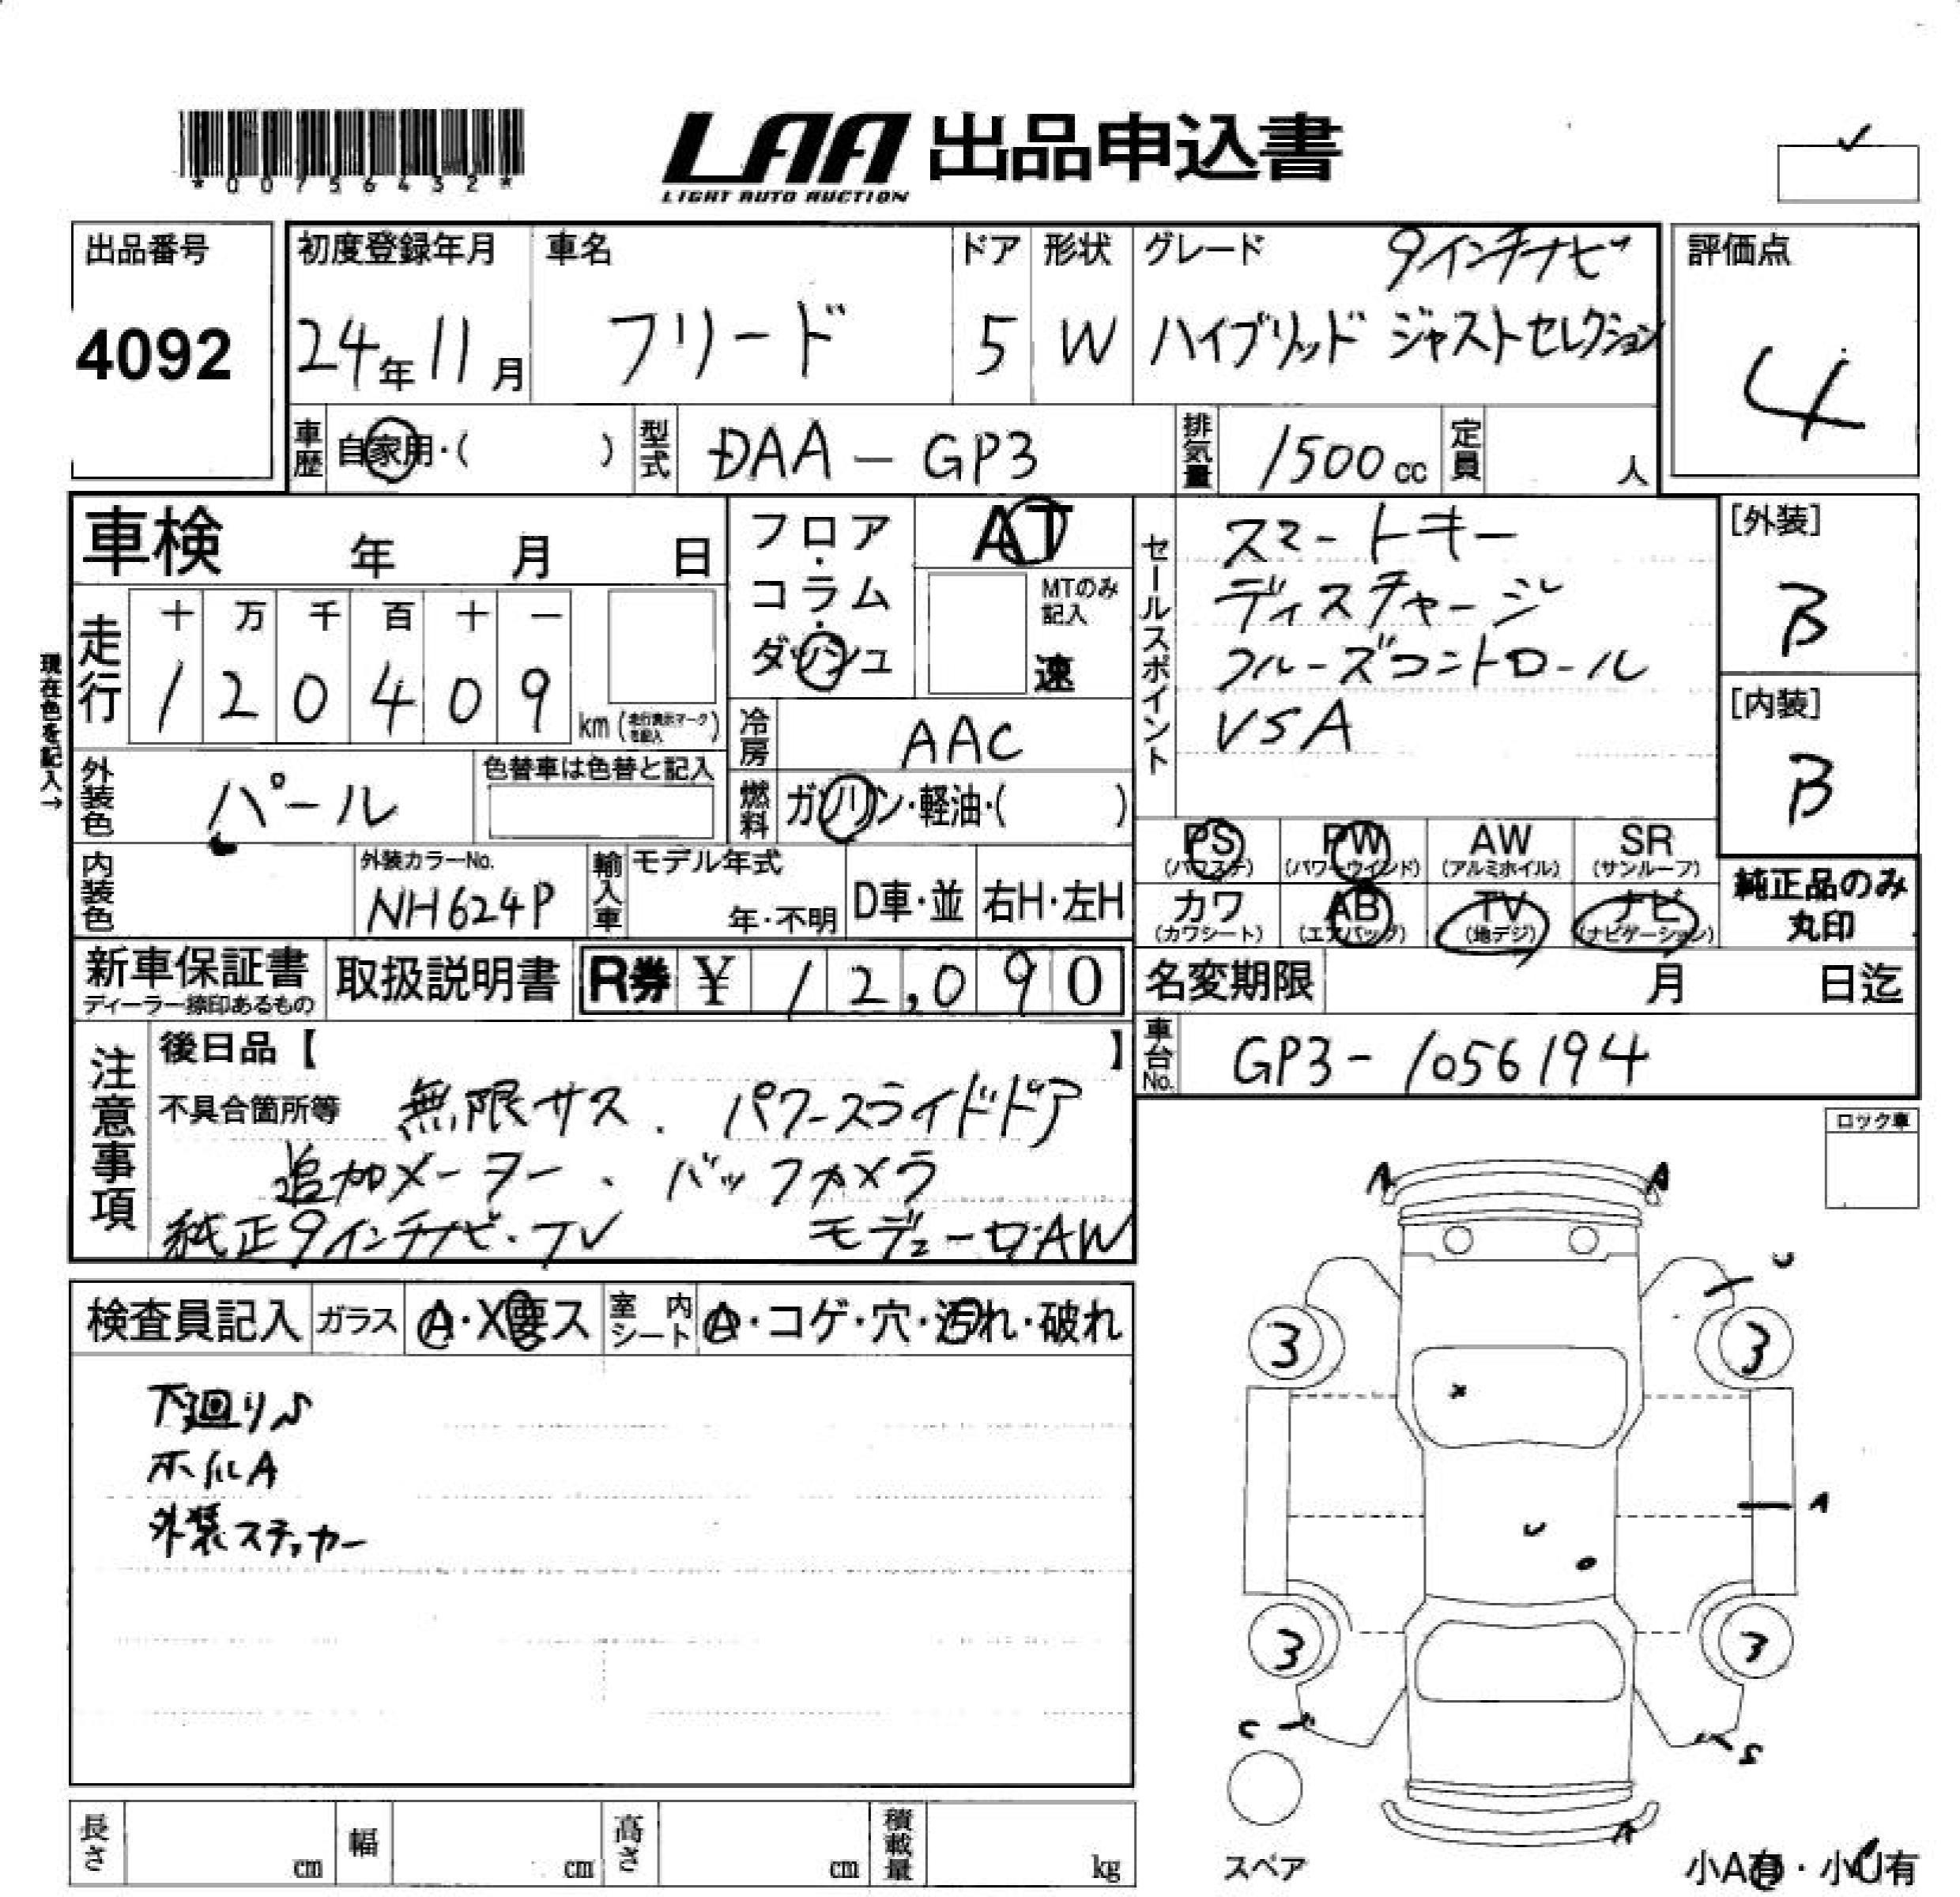 *00756432*
LAA 出品申込書
LIGHT AUTO AUCTION
出品番号
4092
初度登録年月
24年11月
車名
フリード
ドア
5
形状
W
グレード
9インチナビ
ハイブリッド ジャストセレクション
評価点
4
車歴 自家用・( )
型式 DAA-GP3
排気量 1500cc
定員 人
車検 年 月 日
フロア・コラム・ダッシュ
AT
MTのみ記入
速
セールスポイント
スマートキー
ディスチャージ
クルーズコントロール
VSA
[外装]
B
[内装]
B
現在色を記入→
走行
十 万 千 百 十 一
1 2 0 4 0 9 km (走行表示マークを記入)
冷房 AAC
外装色 パール
色替車は色替と記入
燃料 ガソリン・軽油・( )
PS (パワステ)
PW (パワーウインド)
AW (アルミホイル)
SR (サンルーフ)
カワ (カワシート)
AB (エアバッグ)
TV (地デジ)
ナビ (ナビゲーション)
純正品のみ
丸印
内装色
外装カラーNo.
NH624P
輸入車
モデル年式
年・不明
D車・並
右H・左H
新車保証書
ディーラー捺印あるもの
取扱説明書
R券 ¥ 12,090
名変期限 月 日迄
車台No. GP3-1056194
注意事項
後日品【 】
不具合箇所等 無限サス. パワースライドドア
追加メーター、バックカメラ
純正9インチナビ・TV モデューロAW
ロック車
検査員記入
ガラス A・X要ス
室内シート A・コゲ・穴・汚れ・破れ
下廻りS
ホイルA
外装ステッカー
A A
U
3 3
x
A
U
3 3
C
S
A
スペア
小A有・小U有
長さ cm
幅 cm
高さ cm
積載量 kg